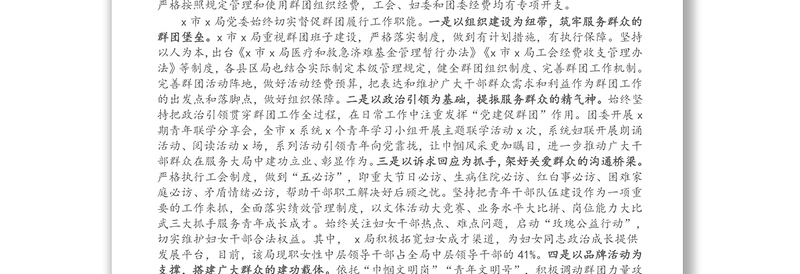 严格按照规定管理和使用群团组织经费，工会、妇委和团委经费均有专项开支。
x 市 x 局党委始终切实督促群团履行工作职能。一是以组织建设为纽带，筑牢服务群众的
群团堡垒。x 市 x 局重视群团班子建设，严格落实制度，做到有计划措施，有执行保障。坚持
以人为本，出台《x 市 x 局医疗和救急济难基金管理暂行办法》《x 市 x 局工会经费收支管理办
法》等制度，各县区局也结合实际制定本级管理规定，健全群团组织制度、完善群团工作机制。
完善群团活动阵地，做好活动经费预算，把表达和维护广大干部群众需求和利益作为群团工作
的出发点和落脚点，做好组织保障。二是以政治引领为基础，提振服务群众的精气神。始终坚
持把政治引领贯穿群团工作全过程，在日常工作中注重发挥“党建促群团”作用。团委开展 x
期青年联学分享会，全市 x 系统 x 个青年学习小组开展主题联学活动 x 次，系统妇联开展朗诵
活动、阅读活动 x 场，系列活动引领青年向党看齐，让巾帼风采更加瞩目，进一步推动广大干
部群众在服务大局中建功立业、彰显作为。三是以诉求回应为抓手，架好关爱群众的沟通桥梁。
严格执行工会制度，做到“五必访”，即重大节日必访、生病住院必访、红白事必访、困难家
庭必访、矛盾情绪必访，帮助干部职工解决好后顾之忧。坚持把青年干部队伍建设作为一项重
要的工作来抓，全面落实绩效管理制度，以文体活动大竞赛、业务水平大比拼、岗位能力大比
武三大抓手服务青年成长成才。始终关注妇女干部热点、难点问题，启动“玫瑰公益行动”，
切实维护妇女干部合法权益。其中， x 局积极拓宽妇女成才渠道，为妇女同志政治成长提供
发展平台，目前，该局现职女性中层领导干部占全局中层领导干部的 41%。四是以品牌活动为
支撑，搭建广大群众的建功载体。依托“巾帼文明岗”“青年文明号”，积极调动群团力量攻